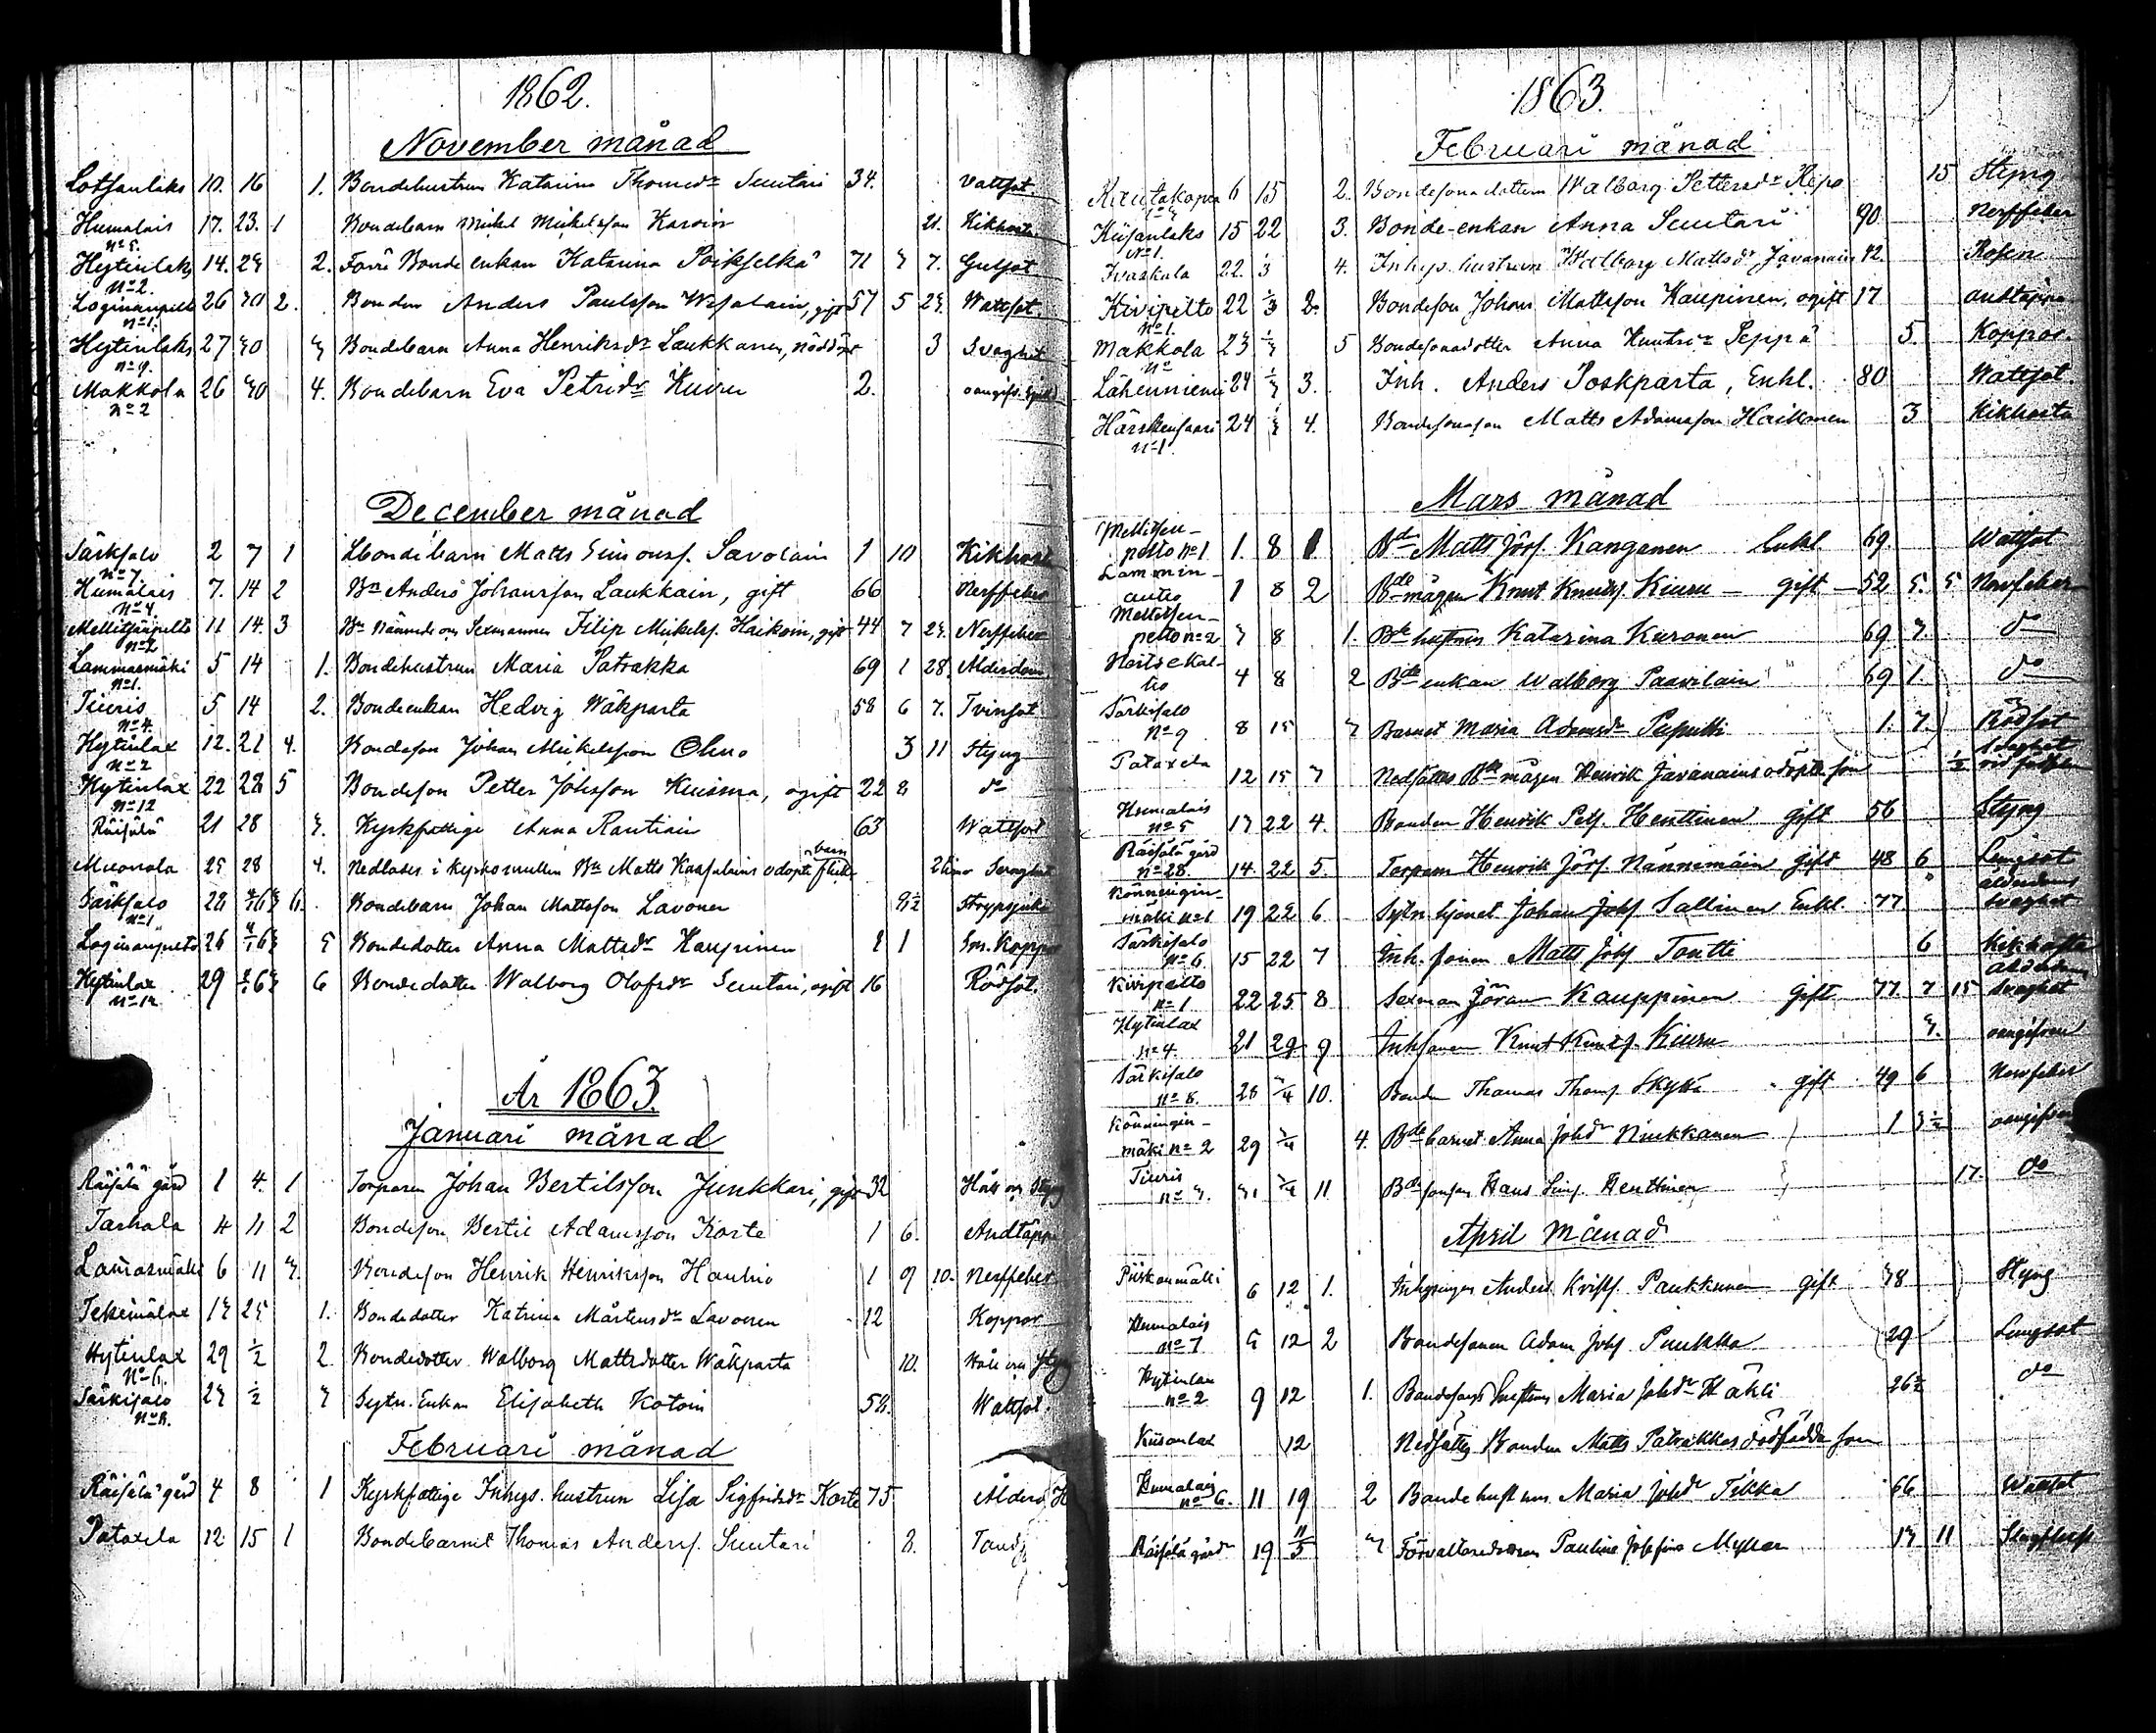 1862.
November månad
Lotsanlaks 10. 16 1. Bondehustrun Katarina Thomsdr Suutari 34. Vattsot.
Humalais 17. 23. 1 Bondebarn Mickel Mickelsson Karvin 21. Kikhosta
No 5.
Hytinlaks 14. 23 2. Förre Bonde enkan Katarina Poikselkä 71 3 7. Gulsot
No 2.
Loginanpelto 26 30 2. Bonden Anders Paulsson Wesalain, gift 57 5 23. Wattsot.
No 1.
Hytinlaks 27 30 3 Bondebarn Anna Henriksdr Laukkanen, nöddöpt 3 Svaghet
No 9.
Makkola 26 30 4. Bondebarn Eva Petridr Kiuru 2. oangifv.
No 2
December månad
Särkisalo 2 7 1 Bondebarn Matts Simonss. Savolain 1 10 Kikhosta
No 7.
Humalais 7. 14 2 Bn Anders Johansson Laukkain, gift 66 Nerffeber
No 4
Mellitsänpelto 11 14. 3 Bn Nämnde om Sexmannen Filip Mickelss. Haikoin, gift 44 7 23. Nerffeber
No 2
Lammasmäki 5 14 1. Bondehustrun Maria Patrakka 69 1 28. Alderdom
No 1.
Tiuris 5 14 2. Bondeenkan Hedvig Wäkparta 58 6 7. Tvinsot
No 4.
Hytinlax 12. 21 4. Bondeson Johan Mickelsson Ohvo 3 11 Styng
No 2
Hytinlax 22 28 5 Bondeson Petter Johsson Kuisma, ogift 22 8 do
No 12
Räisälä 21 28 3. Kyrkfattige Anna Rautiain 63 Wattsot
barn
Muonola 25 28 4. Nedlades i kyrkomullen Bn Matts Kaasalains odöpta flicka Svaghet
Särkisalo 28 6. Bondebarn Johan Mattsson Lavonen 8½ Strypsjuka
No 1
Loginanpelto 26 5 Bondedotter Anna Mattsdr Kaupinen 1 Sm. Koppor
Hytinlax 29 6 Bondedotter Walborg Olofsdr Suutari, ogift 16 Rödsot.
No 12
År 1863.
Januari månad
Räisälä gård 1 4. 1 Torparen Johan Bertilsson Junkkari, gift 32 Håll och Styng
Tarkala 4 11 2 Bondeson Bertil Adamsson Korte 1 6. Andtäppa
Lamasmäki 6 11 3. Bondeson Henrik Henriksson Hauhio 1 9 10. Nerffeber
Tekeinälax 13 25 1. Bondedotter Katrina Mårtensdr Lavonen 12 Koppor
Hytinlax 29 ½ 2 Bondedotter Walborg Mattsdotter Wäkparta 10. Håll och styng
No 6.
Särkisalo 23 ½ 3 Sytn. Enkan Elisabeth Kotoin 58. Wattsot
No 8.
Februari månad
Räisälä gård 4 8 1 Kyrkfattige Inhys. hustrun Lisa Sigfridsdr Korte 75 Ålderd
Pataxela 12. 15 1 Bondebarnet Thomas Anderss. Suutari 8. Tands
1863.
Februari månad
Rautakopra 6 15 2. Bondesonadottern Walborg Pettersdr Repo 15 Styng
Kiisanlaks 15 22 3. Bonde-enkan Anna Suutari 90. Nerffeber
No 1.
Ivaskala 22. 4. Inhys. hustrun Walborg Mattsdr Javanain 42. Rosen
Kivipelto 22 2. Bondeson Johan Mattsson Kaupinen, ogift 17 andtäppa
No 1.
Makkola 23 5 Bondesonadotter Anna Knutsdr Peppä 5. Koppor.
No
Lähenniemi 24 3. Inh. Anders Poskparta, Enkl. 80 Wattsot.
Härskensaari 24 4. Bondesonason Matts Adamsson Haikonen 3 Kikhosta
No 1
Mars månad
Mellitsen-
pelto No 1 1. 8 1. Bd Matts Jörs. Kanganen Enkl. 69. Wattsot
Lammin-
autio 1 8 2 Bde mågen Knut Knuts. Kiuru gift 52 5. 5 Nervfeber
Mellitsen-
pelto No 2 3 8 1. Bde hustrun Katarina Kuronen 69 3. do
Neitsekal-
lio 4 8 2 Bde enkan Walborg Paavilain 69 1. do
Särkisalo
No 9 8 15 3 Barnet Maria Adamsdr Puputti 1. 7. Rödsot
Pataxela 12 15 3 Nedsattes Bde mågen Henrik Javanains odöpte son ½ Svaghet vid födseln
Humalais
No 5 13 22 4. Bonden Henrik Pets. Henttinen Gift 56 Styng
Räisälä gård
No 28. 14. 22 5. Torparn Henrik Jörs. Nännimäin gift 48 6 Lungsot
Könnuigin-
mäki No 1 19 22 6. Sytn. hjonet Johan Johs. Sallinen Enkl. 77 ålderdoms svaghet
Särkisalo
No 6. 15 22 7 Inh. sonen Matts Johs. Tontti 6 Kikhosta
Kivipelto
No 1 22 25 8 Sexman Jöran Kauppinen Gift 77. 7 15 Alderdoms svaghet
Hytinlax
No 4. 21 29 9 Inh sonen Knut Knuts. Kiuru 3. oangifven
Särkisalo
No 8. 28 10. Bonden Thomas Thoms. Skyttä gift 49 6 Nervfeber
Könningin-
mäki No 2 29 4. Bde barnet Anna Johdr Niukkanen 1 3½ oangifven
Tiuris
No 3. 31 11. Bde sonson Hans Sims. Henttinen 17. do
April Månad
Piiskonmäki 6 12 1. Inhysingen Anders Krists. Paukkunen gift 38 Styng
Humalais
No 7 5 12 2 Bondesonen Adam Johs. Puukka 29 Lungsot
Hytinlax
No 2 9 12 1. Bondesons hustrun Maria Johdr Häkli 26½ do
Kiisanlax 12 Nedsattes Bonden Matts Patrakkas dödfödda son
Humalais
No 6. 11 19 2 Bondehustrun Maria Johdr Tikka 66 Wattsot
Räisälä gård 19 3 Förvaltaredottren Paulina Josefina Myllar 13 11 Slagfluss